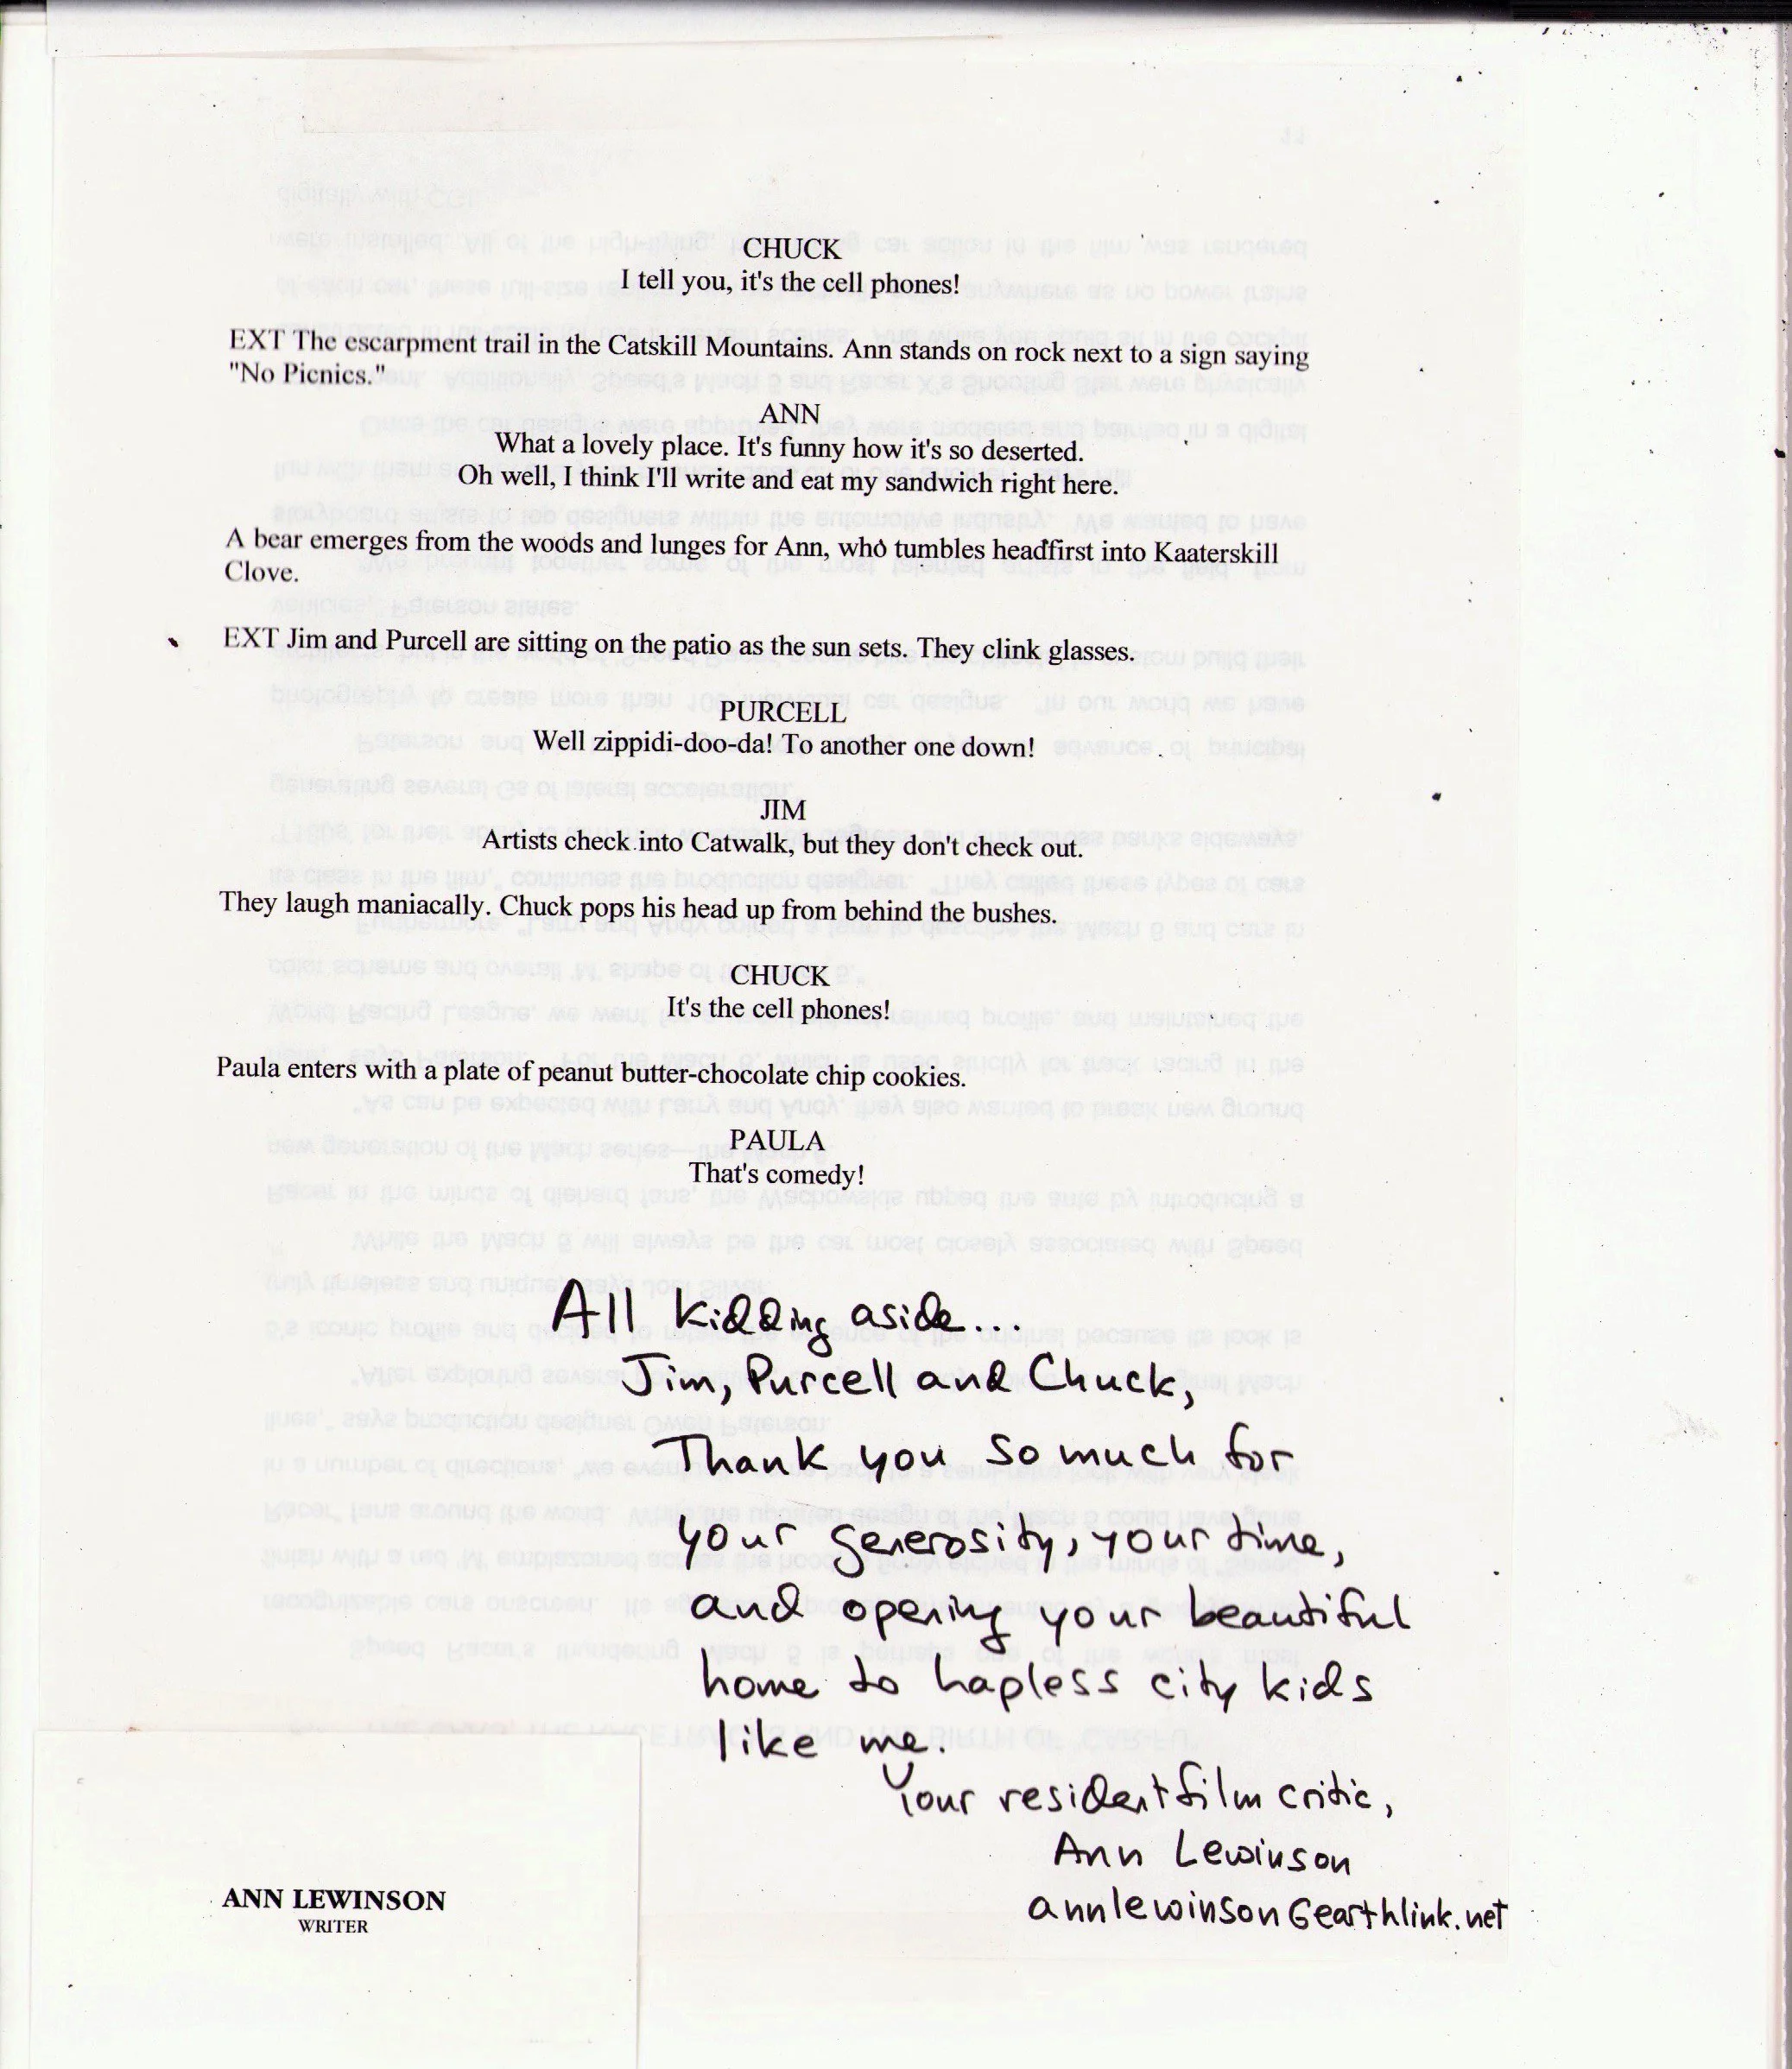 CHUCK
I tell you, it's the cell phones!
EXT The escarpment trail in the Catskill Mountains. Ann stands on rock next to a sign saying
"No Picnics."
ANN
What a lovely place. It's funny how it's so deserted.
Oh well, I think I'll write and eat my sandwich right here.
A bear emerges from the woods and lunges for Ann, who tumbles headfirst into Kaaterskill
Clove.
EXT Jim and Purcell are sitting on the patio as the sun sets. They clink glasses.
PURCELL
Well zippidi-doo-da! To another one down!
JIM
Artists check into Catwalk, but they don't check out.
They laugh maniacally. Chuck pops his head up from behind the bushes.
CHUCK
It's the cell phones!
Paula enters with a plate of peanut butter-chocolate chip cookies.
PAULA
That's comedy!
All kidding aside...
Jim, Purcell and Chuck,
Thank you so much for
your generosity, your time,
and opening your beautiful
home to hapless city kids
like me.
Your resident film critic,
Ann Lewinson
annlewinson@earthlink.net
ANN LEWINSON
WRITER